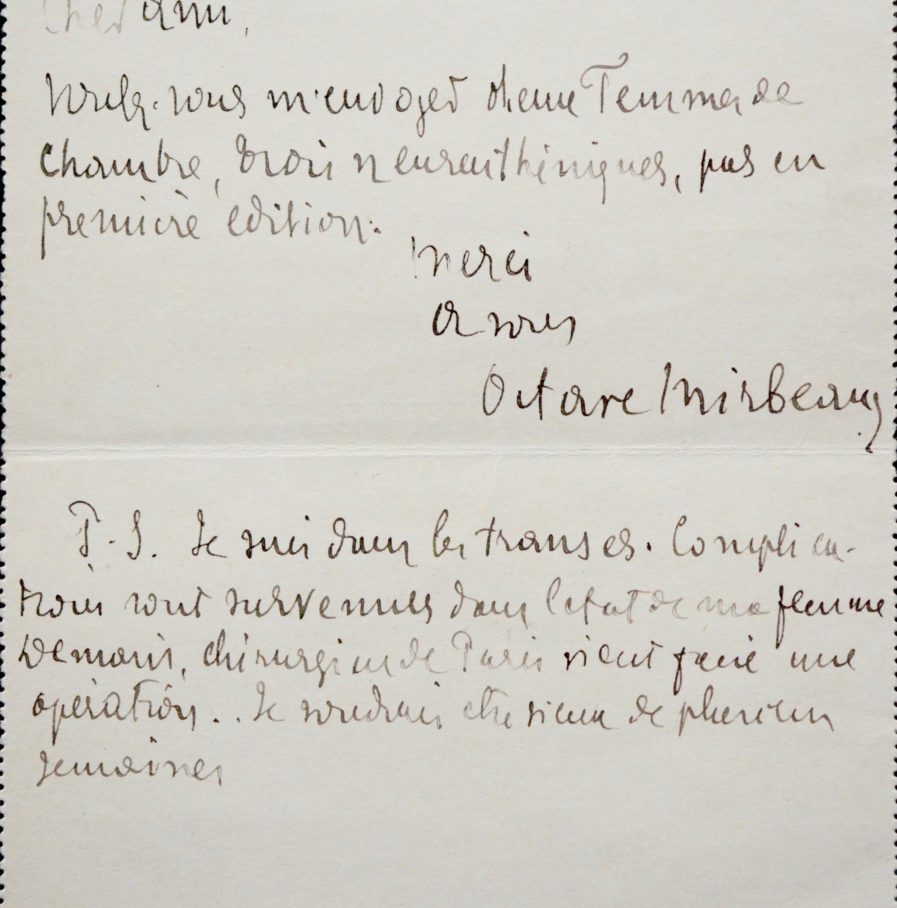 Cher ami,
Voulez-vous m'envoyer deux Femme de
chambre, trois neurasthéniques, pas en
première édition.
Merci
à vous
Octave Mirbeau
P.S. Je suis dans les transes. Complica-
tions sont survenues dans l'état de ma femme
Demain, chirurgien de Paris vient faire une
opération.. Je voudrais être vieux de plusieurs
semaines